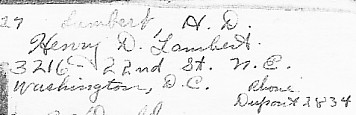 27 Lambert, H. D.
Henry D. Lambert.
3216 - 22nd St. N.E.
Washington, D.C. Phone
Dupont 2834